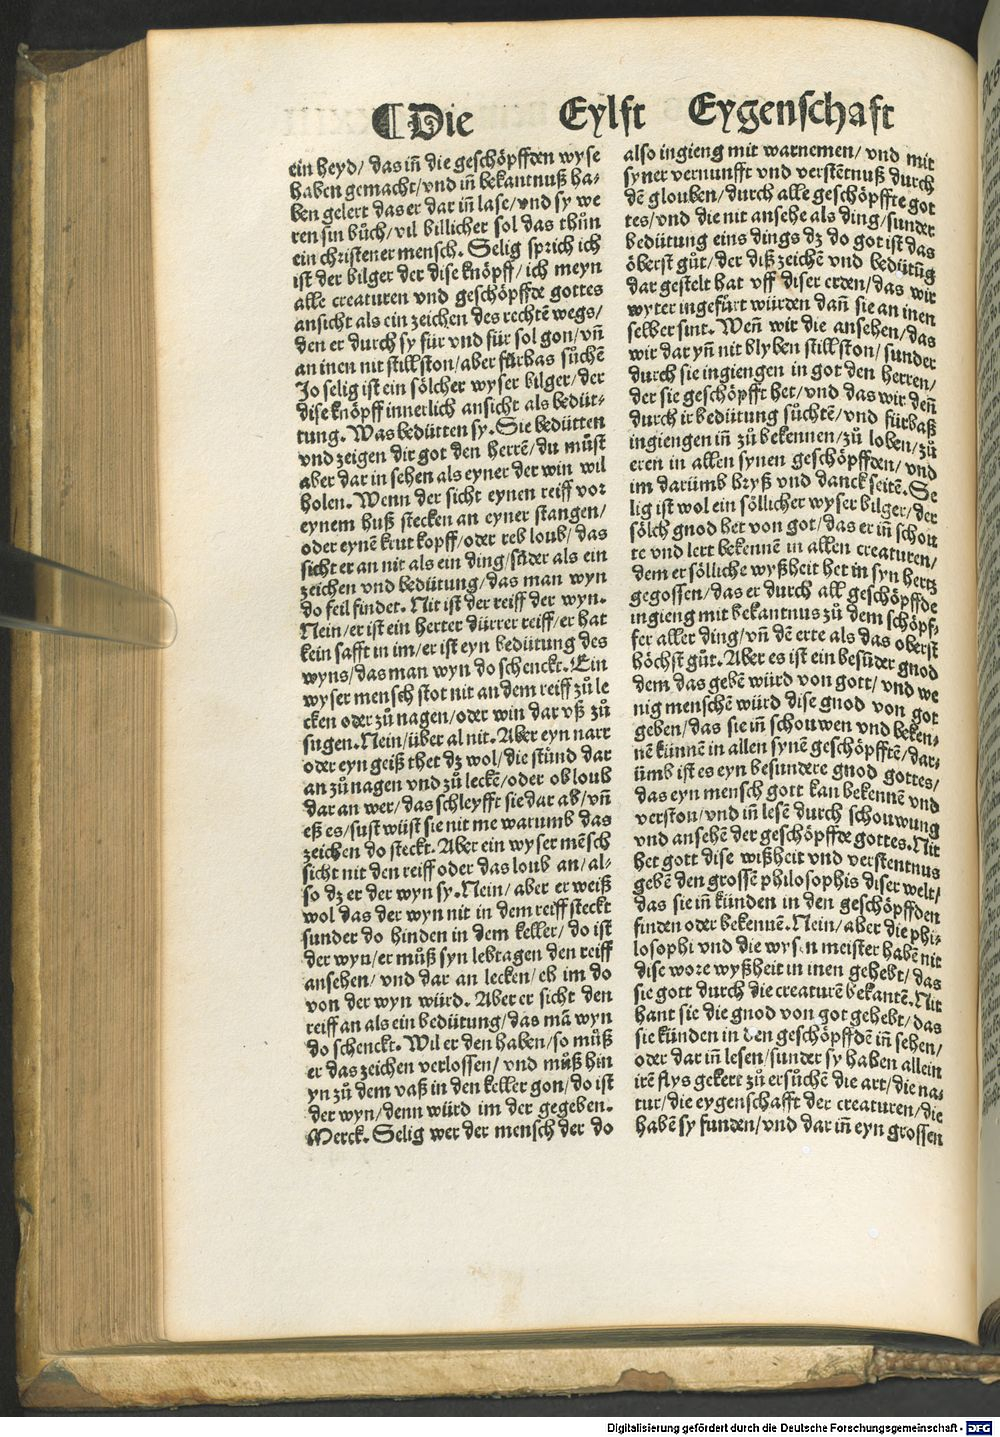 ¶Die Eylft Eygenschaft
ein heyd/ das in̄ die geschöpffden wyse
haben gemacht/vnd in̄ bekantnuß ha⸗
ben gelert das er dar in̄ lase/vnd sy we
ren sin bůch/vil billicher sol das thůn
ein christener mensch. Selig sprich ich
ist der bilger der dise knöpff/ich meyn
alle creaturen vnd geschöpffde gottes
ansicht als ein zeichen des rechtē wegs/
den er durch sy für vnd für sol gon/vn̄
an inen nit still ston/aber fürbas sůchē
Jo selig ist ein sölcher wyser bilger/der
dise knöpff innerlich ansicht als bedüt⸗
tung. Was bedütten sy. Sie bedütten
vnd zeigen dir got den herrē/du můst
aber dar in sehen als eyner der win wil
holen. Wenn der sicht eynen reiff vor
eynem huß stecken an eyner stangen/
oder eynē krut kopff/oder reb loub/das
sicht er an nit als ein ding/sūder als ein
zeichen vnd bedütung/das man wyn
do feil findet. Nit ist der reiff der wyn.
Nein/er ist ein herter dürrer reiff/er hat
kein safft in im/er ist eyn bedütung des
wyns/das man wyn do schenckt. Ein
wyser mensch stot nit an dem reiff zů le
cken oder zů nagen/oder win dar vß zů
sugen. Nein/über al nit. Aber eyn narr
oder eyn geiß thet dz wol/die stünd dar
an zů nagen vnd zů leckē/oder ob loub
dar an wer/das schleyfft sie dar ab/vn̄
eß es/sust wüst sie nit me warumb das
zeichen do steckt. Aber ein wyser mēsch
sicht nit den reiff oder das loub an/al⸗
so dz er der wyn sy. Nein/aber er weiß
wol das der wyn nit in dem reiff steckt
sunder do hinden in dem keller/do ist
der wyn/er můß syn lebtagen den reiff
ansehen/vnd dar an lecken/eb im do
von der wyn würd. Aber er sicht den
reiff an als ein bedütung/das mā wyn
do schenckt. Wil er den haben/so můß
er das zeichen verlossen/vnd můß hin
yn zů dem vaß in den keller gon/do ist
der wyn/denn würd im der gegeben.
Merck. Selig wer der mensch der do
also ingieng mit warnemen/vnd mit
syner vernunfft vnd verstētnuß durch
dē glouben/durch alle geschöpffte got
tes/vnd die nit ansehe als ding/sunder
bedütung eins dings dz do got ist das
öberst gůt/der diß zeichē vnd bedütūg
dar gestelt hat vff diser erden/das wir
wyter ingefürt würden dan̄ sie an inen
selber sint. Wen̄ wir die ansehen/das
wir dar yn̄ nit blyben still ston/sunder
durch sie ingiengen in got den herren/
der sie geschöpfft het/vnd das wir den̄
durch ir bedütung sůchtē/vnd fürbaß
ingiengen in̄ zů bekennen/zů loben/zů
eren in allen synen geschöpffden/vnd
im darümb bryß vnd danck seitē. Se
lig ist wol ein söllicher wyser bilger/der
sölch gnod het von got/das er in̄ schou
te vnd lert bekennē in allen creaturen/
dem er sölliche wyßheit het in syn hertz
gegossen/das er durch all geschöpffde
ingieng mit bekantnus zů dem schöpf⸗
fer aller ding/vn̄ dē erte als das oberst
höchst gůt. Aber es ist ein besūder gnod
dem das gebē würd von gott/vnd we
nig menschē würd dise gnod von got
geben/das sie in̄ schouwen vnd beken⸗
nē künnē in allen synē geschöpfftē/dar⸗
ümb ist es eyn besundere gnod gottes/
das eyn mensch gott kan bekennē vnd
verston/vnd in̄ lesē durch schouwung
vnd ansehē der geschöpffde gottes. Nit
het gott dise wißheit vnd verstentnus
gebē den grossē philosophis diser welt/
das sie in̄ künden in den geschöpffden
finden oder bekennē. Nein/aber die phi⸗
losophi vnd die wysen meister habē nit
dise wore wyßheit in inen gehebt/das
sie gott durch die creaturē bekantē. Nit
hant sie die gnod von got gehebt/das
sie künden in den geschöpffdē in̄ sehen/
oder dar in̄ lesen/sunder sy haben allein
irē flys gekert zů ersůchē die art/die na⸗
tur/die eygenschafft der creaturen/die
habē sy funden/vnd dar in̄ eyn grossen
Digitalisierung gefördert durch die Deutsche Forschungsgemeinschaft - DFG